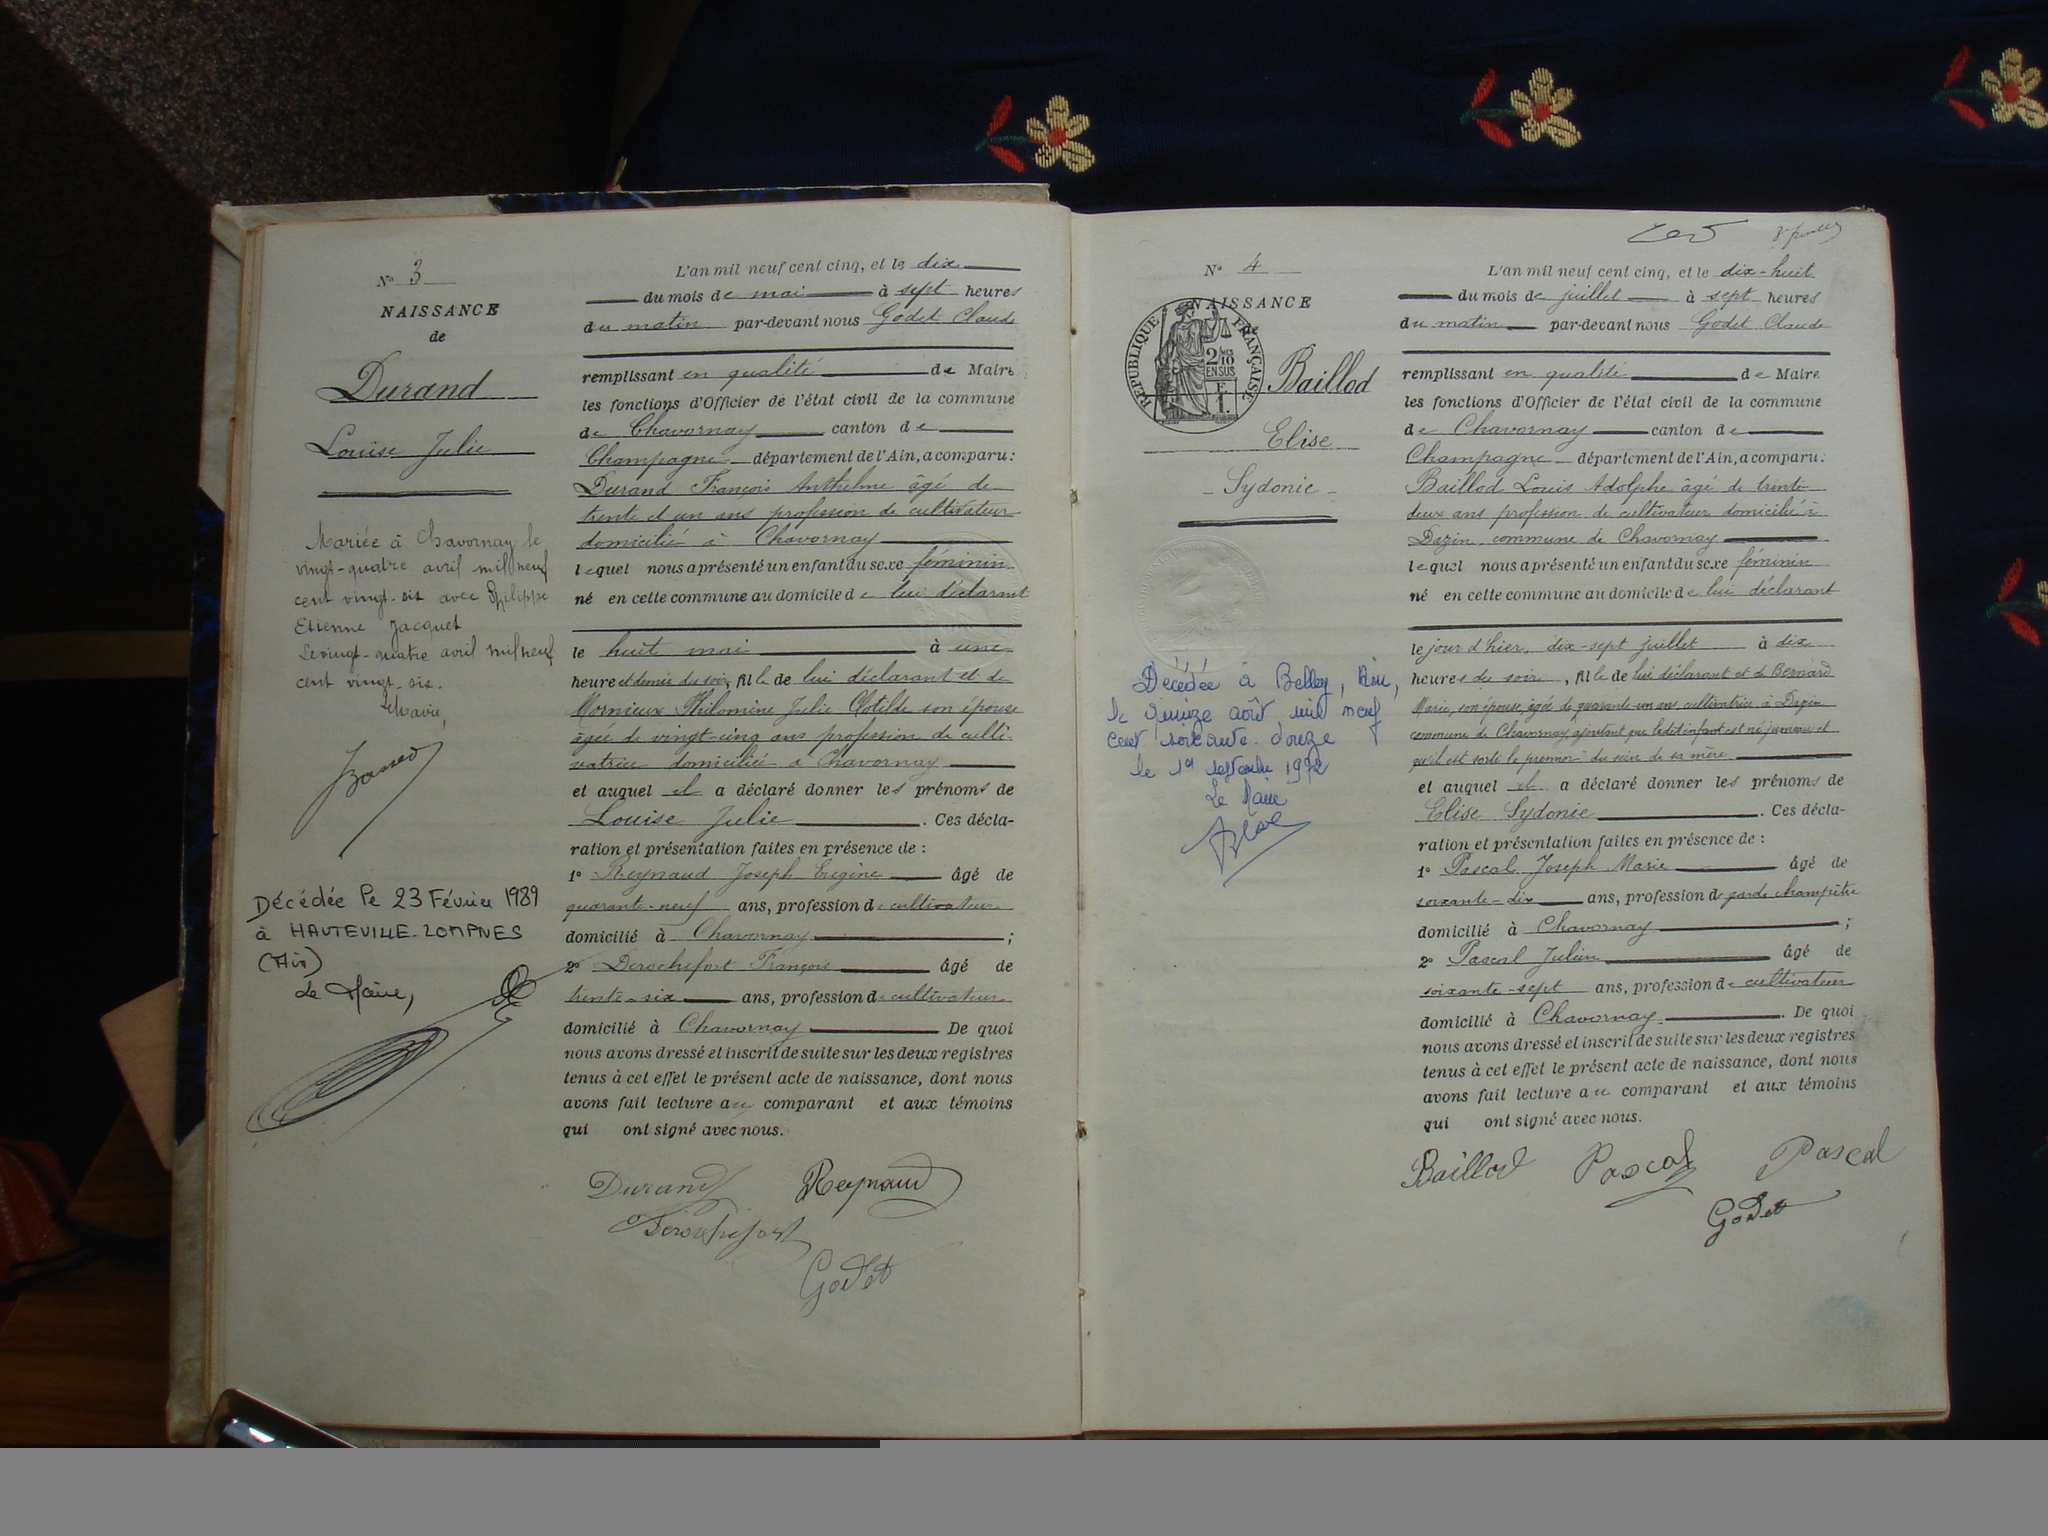 N° 3
NAISSANCE
de
Durand
Louise Julie
Mariée à Chavornay le
vingt-quatre avril mil neuf
cent vingt-six avec Philippe
Etienne Jacquet
Le vingt-quatre avril mil neuf
cent vingt-six.
Le Maire,
Décédée le 23 Février 1989
à HAUTEVILLE-LOMPNES
(Ain)
Le Maire,
L'an mil neuf cent cinq, et le dix
du mois de mai à sept heures
du matin par-devant nous Godet Claude
remplissant en qualité de Maire
les fonctions d'Officier de l'état civil de la commune
de Chavornay canton de
Champagne département de l'Ain, a comparu :
Durand François Anthelme âgé de
trente et un ans profession de cultivateur
domicilié à Chavornay
lequel nous a présenté un enfant du sexe féminin
né en cette commune au domicile de lui déclarant
le huit mai à une
heure et demie du soir, fille de lui déclarant et de
Mornieux Philomine Julie Clotilde son épouse
âgée de vingt-cinq ans profession de culti-
vatrice domiciliée à Chavornay
et auquel il a déclaré donner les prénoms de
Louise Julie . Ces décla-
ration et présentation faites en présence de :
1° Reynaud Joseph Eugène âgé de
quarante-neuf ans, profession de cultivateur
domicilié à Chavornay ;
2° Derochefort François âgé de
trente-six ans, profession de cultivateur
domicilié à Chavornay De quoi
nous avons dressé et inscrit de suite sur les deux registres
tenus à cet effet le présent acte de naissance, dont nous
avons fait lecture au comparant et aux témoins
qui ont signé avec nous.
Durand Reynaud
Derochefort
Godet
N° 4
NAISSANCE
RÉPUBLIQUE FRANÇAISE
2/10
EN SUS
F
1.
Baillod
Elise
Sydonie
Décédée à Belley, Ain,
le quinze août mil neuf
cent soixante-douze
le 1er septembre 1972
Le Maire
L'an mil neuf cent cinq, et le dix-huit
du mois de juillet à sept heures
du matin par-devant nous Godet Claude
remplissant en qualité de Maire
les fonctions d'Officier de l'état civil de la commune
de Chavornay canton de
Champagne département de l'Ain, a comparu :
Baillod Louis Adolphe âgé de trente
deux ans profession de cultivateur domicilié à
Dazin commune de Chavornay
lequel nous a présenté un enfant du sexe féminin
né en cette commune au domicile de lui déclarant
le jour d'hier, dix-sept juillet à dix
heures du soir, fille de lui déclarant et de Bernard
Marie, son épouse, âgée de quarante-un ans cultivatrice à Dazin
commune de Chavornay, ajoutant que ledit enfant est né jumeau et
qu'il est sorti le premier du sein de sa mère
et auquel il a déclaré donner les prénoms de
Elise Sydonie . Ces décla-
ration et présentation faites en présence de :
1° Pascal Joseph Marie âgé de
soixante-dix ans, profession de garde champêtre
domicilié à Chavornay ;
2° Pascal Julien âgé de
soixante-sept ans, profession de cultivateur
domicilié à Chavornay . De quoi
nous avons dressé et inscrit de suite sur les deux registres
tenus à cet effet le présent acte de naissance, dont nous
avons fait lecture au comparant et aux témoins
qui ont signé avec nous.
Baillod Pascal Pascal
Godet